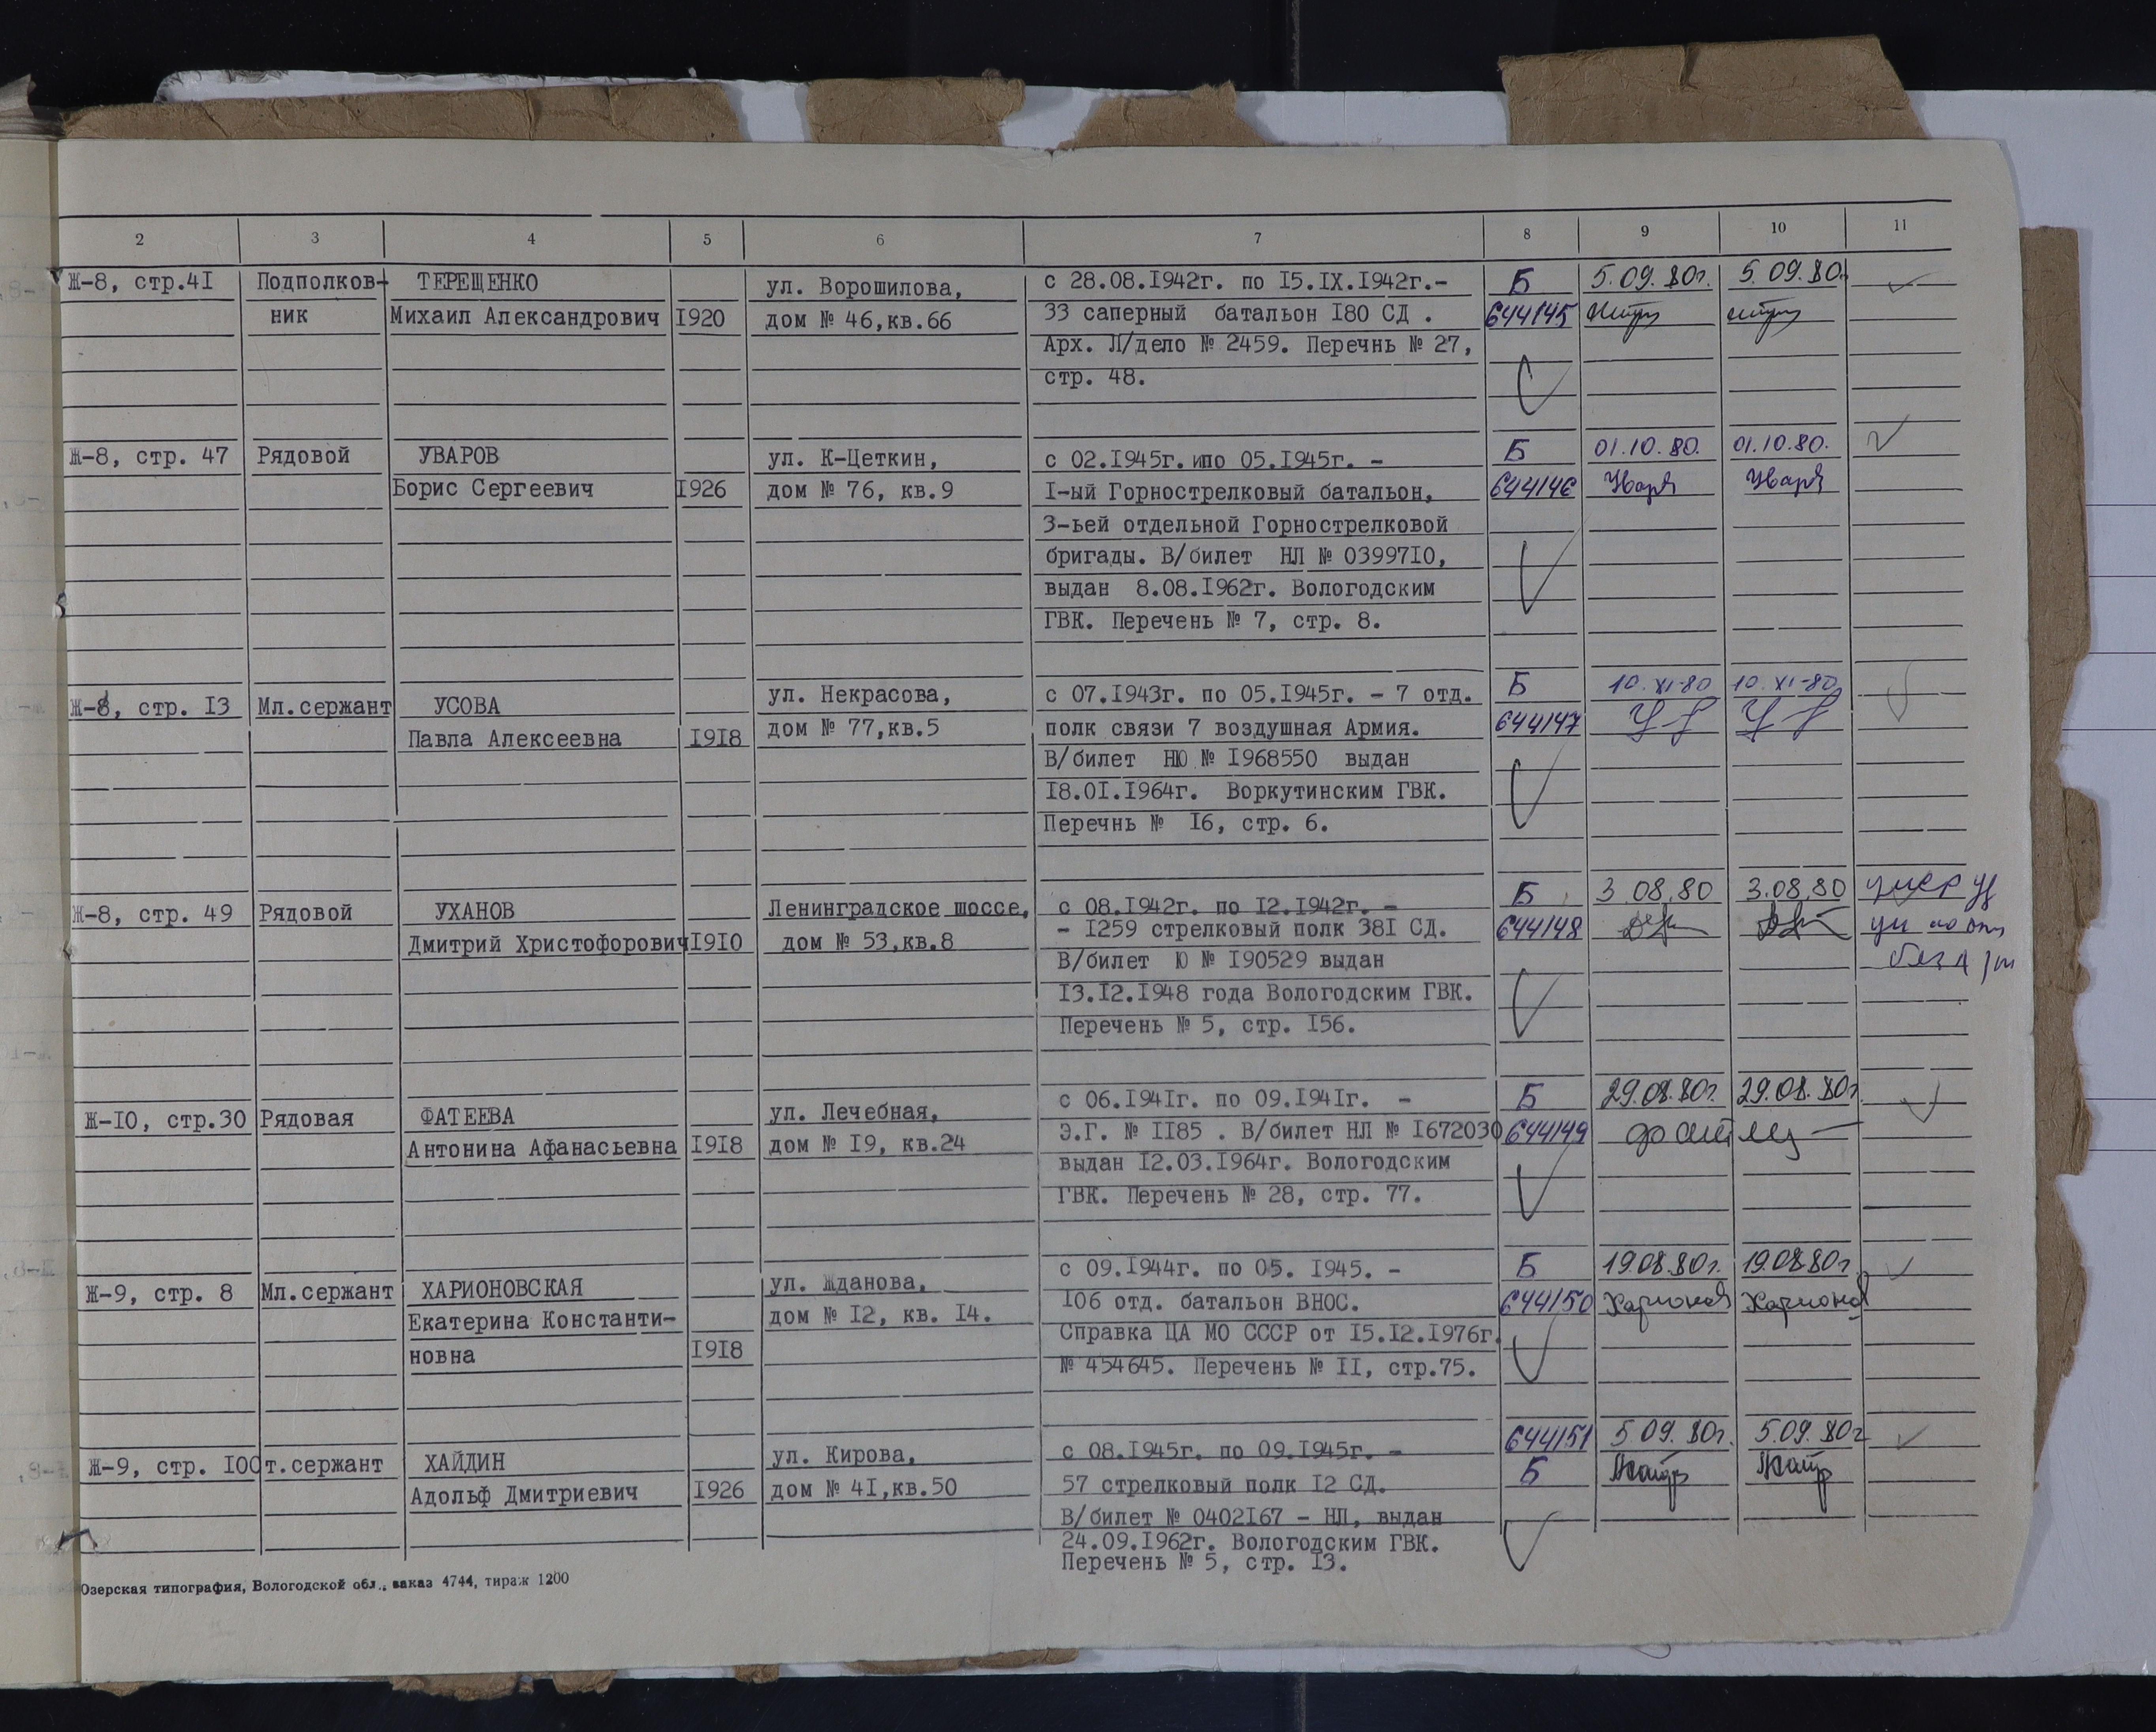 2 3 4 5 6 7 8 9 10 11
Ж-8, стр.4I Подполков- ТЕРЕЩЕНКО ул. Ворошилова, с 28.08.I942г. по I5.IX.I942г.- Б 5.09.80г. 5.09.80
ник Михаил Александрович I920 дом № 46,кв.66 33 саперный батальон I80 СД . 644145
Арх. Л/дело № 2459. Перечнь № 27,
стр. 48.
Ж-8, стр. 47 Рядовой УВАРОВ ул. К-Цеткин, с 02.I945г. ипо 05.I945г. - Б 01.10.80. 01.10.80.
Борис Сергеевич I926 дом № 76, кв.9 I-ый Горнострелковый батальон, 644146
3-ьей отдельной Горнострелковой
бригады. В/билет НЛ № 03997I0,
выдан 8.08.I962г. Вологодским
ГВК. Перечень № 7, стр. 8.
Ж-8, стр. I3 Мл.сержант УСОВА ул. Некрасова, с 07.I943г. по 05.I945г. - 7 отд. Б 10.XI-80 10.XI-80
Павла Алексеевна I9I8 дом № 77,кв.5 полк связи 7 воздушная Армия. 644147
В/билет НЮ № I968550 выдан
I8.0I.I964г. Воркутинским ГВК.
Перечнь № I6, стр. 6.
Ж-8, стр. 49 Рядовой УХАНОВ Ленинградское шоссе, с 08.I942г. по I2.I942г. - Б 3.08.80 3.08.80
Дмитрий Христофорович I9I0 дом № 53,кв.8 - I259 стрелковый полк 38I СД. 644148
В/билет Ю № I90529 выдан
I3.I2.I948 года Вологодским ГВК.
Перечень № 5, стр. I56.
Ж-I0, стр.30 Рядовая ФАТЕЕВА ул. Лечебная, с 06.I94Iг. по 09.I94Iг. - Б 29.08.80г. 29.08.80г
Антонина Афанасьевна I9I8 дом № I9, кв.24 Э.Г. № II85 . В/билет НЛ № I672030 644149
выдан I2.03.I964г. Вологодским
ГВК. Перечень № 28, стр. 77.
Ж-9, стр. 8 Мл.сержант ХАРИОНОВСКАЯ ул. Жданова, с 09.I944г. по 05. I945. - Б 19.08.80г. 19.08.80г
Екатерина Константи- дом № I2, кв. I4. I06 отд. батальон ВНОС. 644150
новна I9I8 Справка ЦА МО СССР от I5.I2.I976г.
№ 454645. Перечень № II, стр.75.
Ж-9, стр. I00 т.сержант ХАЙДИН ул. Кирова, с 08.I945г. по 09.I945г. - 644151 5.09.80г. 5.09.80г
Адольф Дмитриевич I926 дом № 4I,кв.50 57 стрелковый полк I2 СД. Б
В/билет № 0402I67 - НЛ, выдан
24.09.I962г. Вологодским ГВК.
Перечень № 5, стр. I3.
Озерская типография, Вологодской обл., заказ 4744, тираж 1200